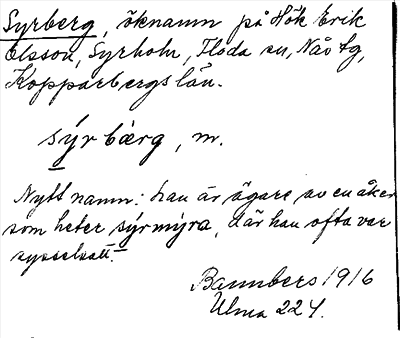 Syrberg, öknamn på Hök Erik
Olsson, Syrholn, Floda sn, Nås tg,
Kopparbergs län.
sýrbærg, m.
Nytt namn: han är ägare av en åker
som heter sýrmýra, där han ofta var
sysselsatt.—
Bannbers 1916
Ulma 224.